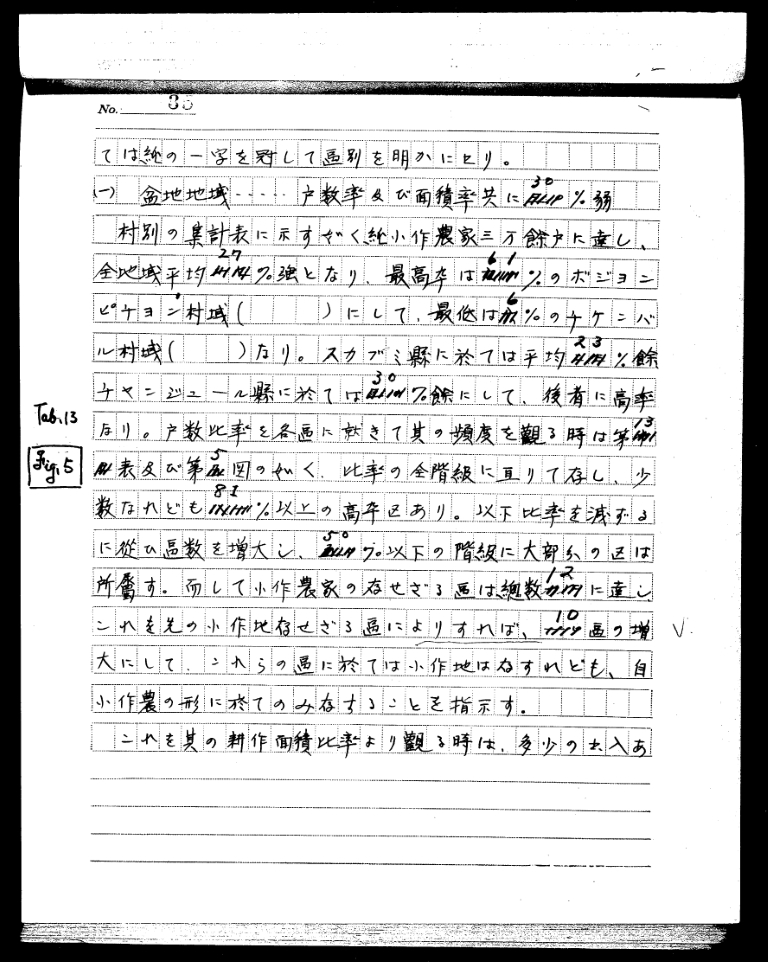 No. 35
ては純の一字を冠して區別を明かにせり。
(一) 盆地地域‥‥‥戸数率及び面積率共に30%弱
村別の集計表に示すがく純小作農家三万餘戸に達し、
全地域平均27%強となり、最高率は61%のボジョン
ピチョン村域(　　)にして、最低は6%のチケンバ
ル村域(　　)なり。スカブミ縣に於ては平均23%餘
チャンジュール縣に於ては30%餘にして、後者に高率
なり。戸数比率を各區に就きて其の頻度を觀る時は第13
Tab.13
表及び第5図の如く、比率の全階級に亘りて存し、少
Fig.5
数なれども81%以上の高率区あり。以下比率を減ずる
に從ひ區数を増大し、50%以下の階級に大部分の区は
所屬す。而して小作農家の存せざる區は總数12に達し
これを先の小作地存せざる區によりすれば、10區の増
大にして、これらの區に於ては小作地は存すれども、自
小作農の形に於てのみ存することを指示す。
これを其の耕作面積比率より觀る時は、多少の出入あ